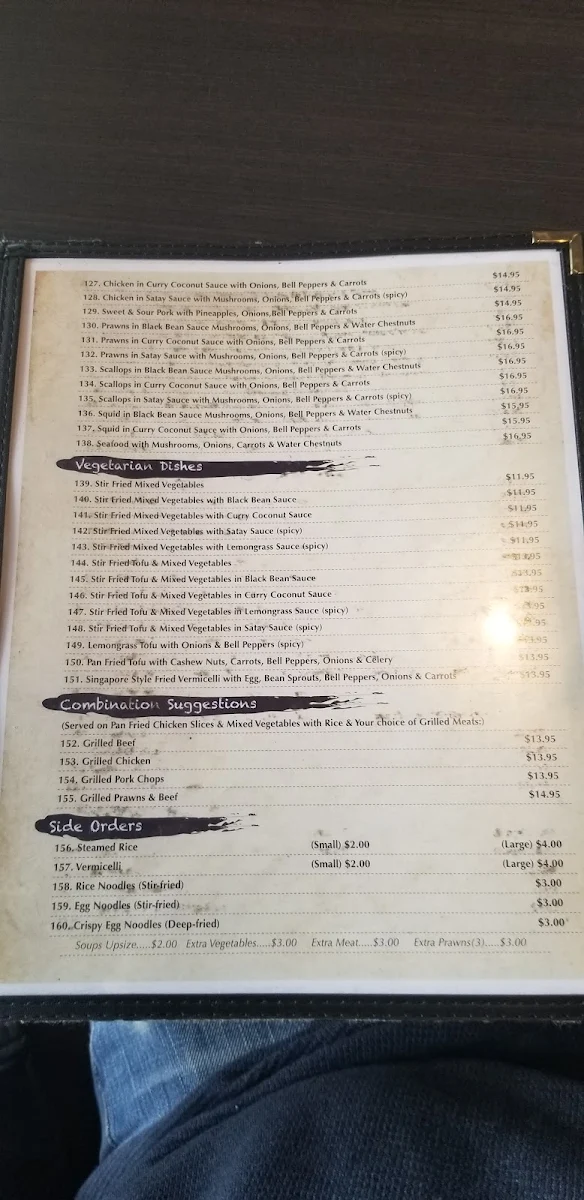 127. Chicken in Curry Coconut Sauce with Onions, Bell Peppers & Carrots $14.95
128. Chicken in Satay Sauce with Mushrooms, Onions, Bell Peppers & Carrots (spicy) $14.95
129. Sweet & Sour Pork with Pineapples, Onions,Bell Peppers & Carrots $14.95
130. Prawns in Black Bean Sauce Mushrooms, Onions, Bell Peppers & Water Chestnuts $16.95
131. Prawns in Curry Coconut Sauce with Onions, Bell Peppers & Carrots $16.95
132. Prawns in Satay Sauce with Mushrooms, Onions, Bell Peppers & Carrots (spicy) $16.95
133. Scallops in Black Bean Sauce Mushrooms, Onions, Bell Peppers & Water Chestnuts $16.95
134. Scallops in Curry Coconut Sauce with Onions, Bell Peppers & Carrots $16.95
135. Scallops in Satay Sauce with Mushrooms, Onions, Bell Peppers & Carrots (spicy) $16.95
136. Squid in Black Bean Sauce Mushrooms, Onions, Bell Peppers & Water Chestnuts $15.95
137. Squid in Curry Coconut Sauce with Onions, Bell Peppers & Carrots $15.95
138. Seafood with Mushrooms, Onions, Carrots & Water Chestnuts $16.95
Vegetarian Dishes
139. Stir Fried Mixed Vegetables $11.95
140. Stir Fried Mixed Vegetables with Black Bean Sauce $11.95
141. Stir Fried Mixed Vegetables with Curry Coconut Sauce $11.95
142. Stir Fried Mixed Vegetables with Satay Sauce (spicy) $11.95
143. Stir Fried Mixed Vegetables with Lemongrass Sauce (spicy) $11.95
144. Stir Fried Tofu & Mixed Vegetables
145. Stir Fried Tofu & Mixed Vegetables in Black Bean Sauce $13.95
146. Stir Fried Tofu & Mixed Vegetables in Curry Coconut Sauce
147. Stir Fried Tofu & Mixed Vegetables in Lemongrass Sauce (spicy)
148. Stir Fried Tofu & Mixed Vegetables in Satay Sauce (spicy)
149. Lemongrass Tofu with Onions & Bell Peppers (spicy)
150. Pan Fried Tofu with Cashew Nuts, Carrots, Bell Peppers, Onions & Celery $13.95
151. Singapore Style Fried Vermicelli with Egg, Bean Sprouts, Bell Peppers, Onions & Carrots $13.95
Combination Suggestions
(Served on Pan Fried Chicken Slices & Mixed Vegetables with Rice & Your choice of Grilled Meats:)
152. Grilled Beef $13.95
153. Grilled Chicken $13.95
154. Grilled Pork Chops $13.95
155. Grilled Prawns & Beef $14.95
Side Orders
156. Steamed Rice (Small) $2.00 (Large) $4.00
157. Vermicelli (Small) $2.00 (Large) $4.00
158. Rice Noodles (Stir-fried) $3.00
159. Egg Noodles (Stir-fried) $3.00
160. Crispy Egg Noodles (Deep-fried) $3.00
Soups Upsize.....$2.00 Extra Vegetables.....$3.00 Extra Meat.....$3.00 Extra Prawns(3).....$3.00